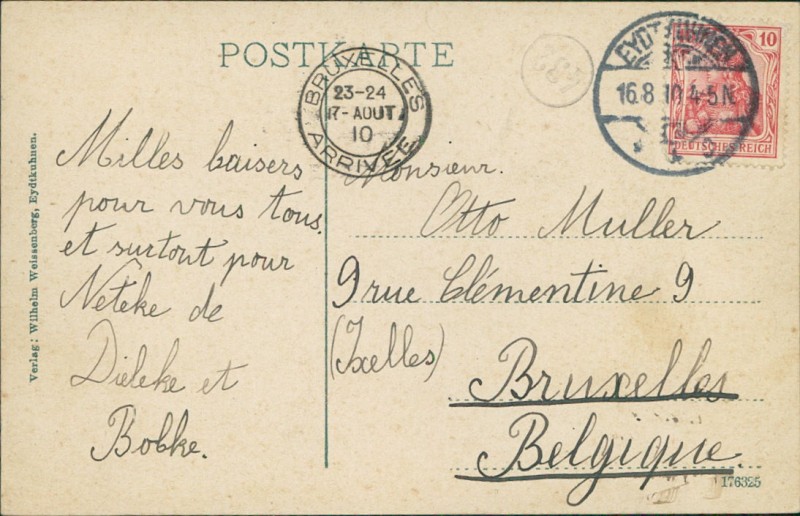 POSTKARTE
BRUXELLES
23-24
17-AOUT
10
ARRIVÉE
EYDTKUHNEN
16.8.10.4-5N.
10
DEUTSCHES REICH
Milles baisers
pour vous tous.
et surtout pour
Neteke de
Dieleke et
Bobke.
Monsieur.
Otto Muller
9 rue Clémentine 9
(Ixelles)
Bruxelles
Belgique.
Verlag: Wilhelm Weissenberg, Eydtkuhnen.
176325